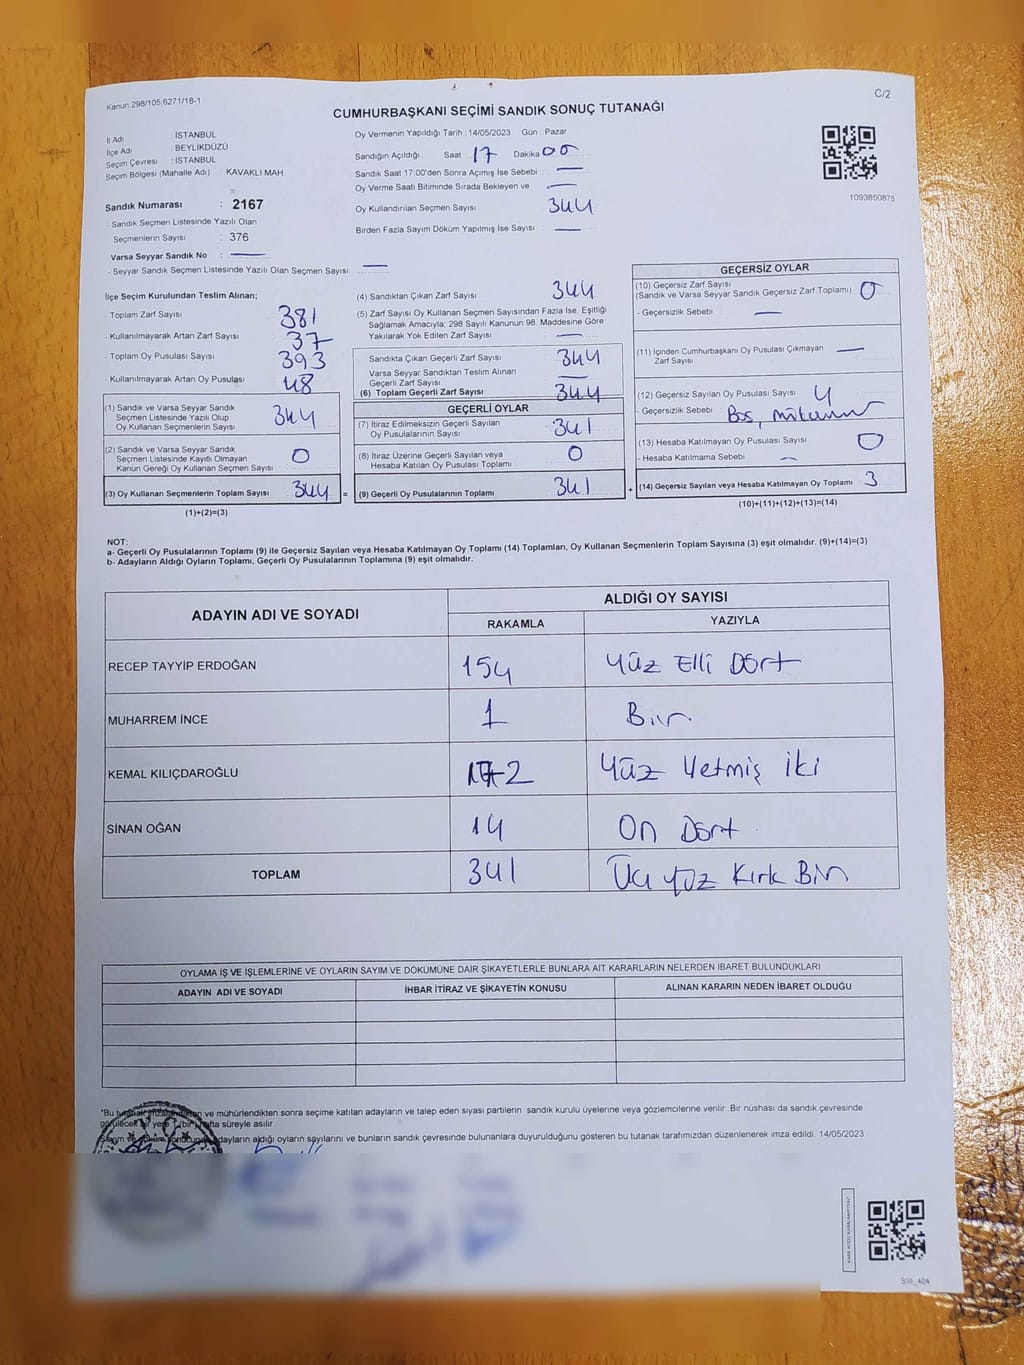 Kanun:298/105,6271/18-1
C/2
CUMHURBAŞKANI SEÇİMİ SANDIK SONUÇ TUTANAĞI
İl Adı : İSTANBUL
İlçe Adı : BEYLİKDÜZÜ
Seçim Çevresi : İSTANBUL
Seçim Bölgesi (Mahalle Adı) : KAVAKLI MAH.
Sandık Numarası : 2167
- Sandık Seçmen Listesinde Yazılı Olan
Seçmenlerin Sayısı : 376
Varsa Seyyar Sandık No : —
- Seyyar Sandık Seçmen Listesinde Yazılı Olan Seçmen Sayısı: —
Oy Vermenin Yapıldığı Tarih : 14/05/2023 Gün : Pazar
Sandığın Açıldığı Saat : 17 Dakika 00
Sandık Saat 17:00'den Sonra Açımış İse Sebebi —
Oy Verme Saati Bitiminde Sırada Bekleyen ve —
Oy Kullandırılan Seçmen Sayısı 344
Birden Fazla Sayım Döküm Yapılmış İse Sayısı —
1093850875
İlçe Seçim Kurulundan Teslim Alınan;
- Toplam Zarf Sayısı 381
- Kullanılmayarak Artan Zarf Sayısı 37
- Toplam Oy Pusulası Sayısı 393
- Kullanılmayarak Artan Oy Pusulası 48
(1) Sandık ve Varsa Seyyar Sandık
Seçmen Listesinde Yazılı Olup
Oy Kullanan Seçmenlerin Sayısı 344
(2) Sandık ve Varsa Seyyar Sandık
Seçmen Listesinde Kayıtlı Olmayan
Kanun Gereği Oy Kullanan Seçmen Sayısı 0
(3) Oy Kullanan Seçmenlerin Toplam Sayısı 344 =
(1)+(2)=(3)
(4) Sandıktan Çıkan Zarf Sayısı 344
(5) Zarf Sayısı Oy Kullanan Seçmen Sayısından Fazla İse, Eşitliği
Sağlamak Amacıyla; 298 Sayılı Kanunun 98. Maddesine Göre
Yakılarak Yok Edilen Zarf Sayısı —
Sandıkta Çıkan Geçerli Zarf Sayısı 344
Varsa Seyyar Sandıktan Teslim Alınan
Geçerli Zarf Sayısı —
(6) Toplam Geçerli Zarf Sayısı 344
GEÇERLİ OYLAR
(7) İtiraz Edilmeksizin Geçerli Sayılan
Oy Pusulalarının Sayısı 341
(8) İtiraz Üzerine Geçerli Sayılan veya
Hesaba Katılan Oy Pusulası Toplamı 0
(9) Geçerli Oy Pusulalarının Toplamı 341 +
GEÇERSİZ OYLAR
(10) Geçersiz Zarf Sayısı
(Sandık ve Varsa Seyyar Sandık Geçersiz Zarf Toplamı) 0
- Geçersizlik Sebebi —
(11) İçinden Cumhurbaşkanı Oy Pusulası Çıkmayan
Zarf Sayısı —
(12) Geçersiz Sayılan Oy Pusulası Sayısı 4
- Geçersizlik Sebebi Boş,
(13) Hesaba Katılmayan Oy Pusulası Sayısı 0
- Hesaba Katılmama Sebebi —
(14) Geçersiz Sayılan veya Hesaba Katılmayan Oy Toplamı 3
(10)+(11)+(12)+(13)=(14)
NOT:
a- Geçerli Oy Pusulalarının Toplamı (9) ile Geçersiz Sayılan veya Hesaba Katılmayan Oy Toplamı (14) Toplamları, Oy Kullanan Seçmenlerin Toplam Sayısına (3) eşit olmalıdır. (9)+(14)=(3)
b- Adayların Aldığı Oyların Toplamı, Geçerli Oy Pusulalarının Toplamına (9) eşit olmalıdır.
ADAYIN ADI VE SOYADI
ALDIĞI OY SAYISI
RAKAMLA YAZIYLA
RECEP TAYYİP ERDOĞAN 154 Yüz Elli Dört
MUHARREM İNCE 1 Bir
KEMAL KILIÇDAROĞLU 172 Yüz Yetmiş iki
SİNAN OĞAN 14 On Dört
TOPLAM 341 Üç yüz Kırk Bir
OYLAMA İŞ VE İŞLEMLERİNE VE OYLARIN SAYIM VE DÖKÜMÜNE DAİR ŞİKAYETLERLE BUNLARA AİT KARARLARIN NELERDEN İBARET BULUNDUKLARI
ADAYIN ADI VE SOYADI İHBAR İTİRAZ VE ŞİKAYETİN KONUSU ALINAN KARARIN NEDEN İBARET OLDUĞU
"Bu tutanak imzalandıktan ve mühürlendikten sonra seçime katılan adayların ve talep eden siyası partilerin sandık kurulu üyelerine veya gözlemcilerine verilir. Bir nüshası da sandık çevresinde
görülecek bir yere 1 (bir) hafta süreyle asılır.
Sayım ve döküm sonucunda adayların aldığı oyların sayılarını ve bunların sandık çevresinde bulunanlara duyurulduğunu gösteren bu tutanak tarafımızdan düzenlenerek imza edildi. 14/05/2023
SSI_404